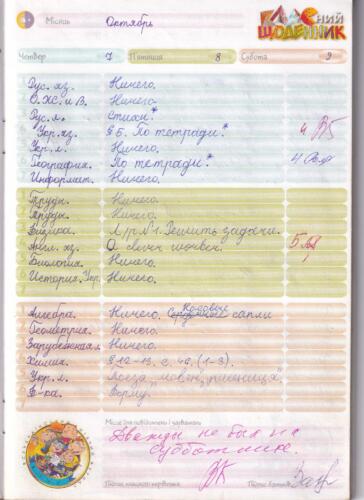 Місяць Октябрь
КЛАСний ЩОДЕННИК
Четвер 7 П'ятниця 8 Субота 9
Рус. яз. Ничего.
О.ХС. и В. Ничего.
Рус. л. Стихи*
Укр. яз. §5. По тетради.* 4
Укр. л. Ничего.
География. По тетради.* 4
Информат. Ничего.
Труды. Ничего.
Труды. Ничего.
Физика. Л/р №1. Решить задачи.
Англ. яз. О своих 5
Биология. Ничего.
История. Укр. Ничего.
Алгебра. Ничего. сапли
Геометрия. Ничего.
Зарубежная л. Ничего.
Химия. §12-13. с. 46. (1-3).
Укр. л. Поэза „мовеш пшениця"
Ф-ра. Форму.
Місце для повідомлень і зауважень
Дважды не был на
субботнике.
Підпис класного керівника Підпис батьків